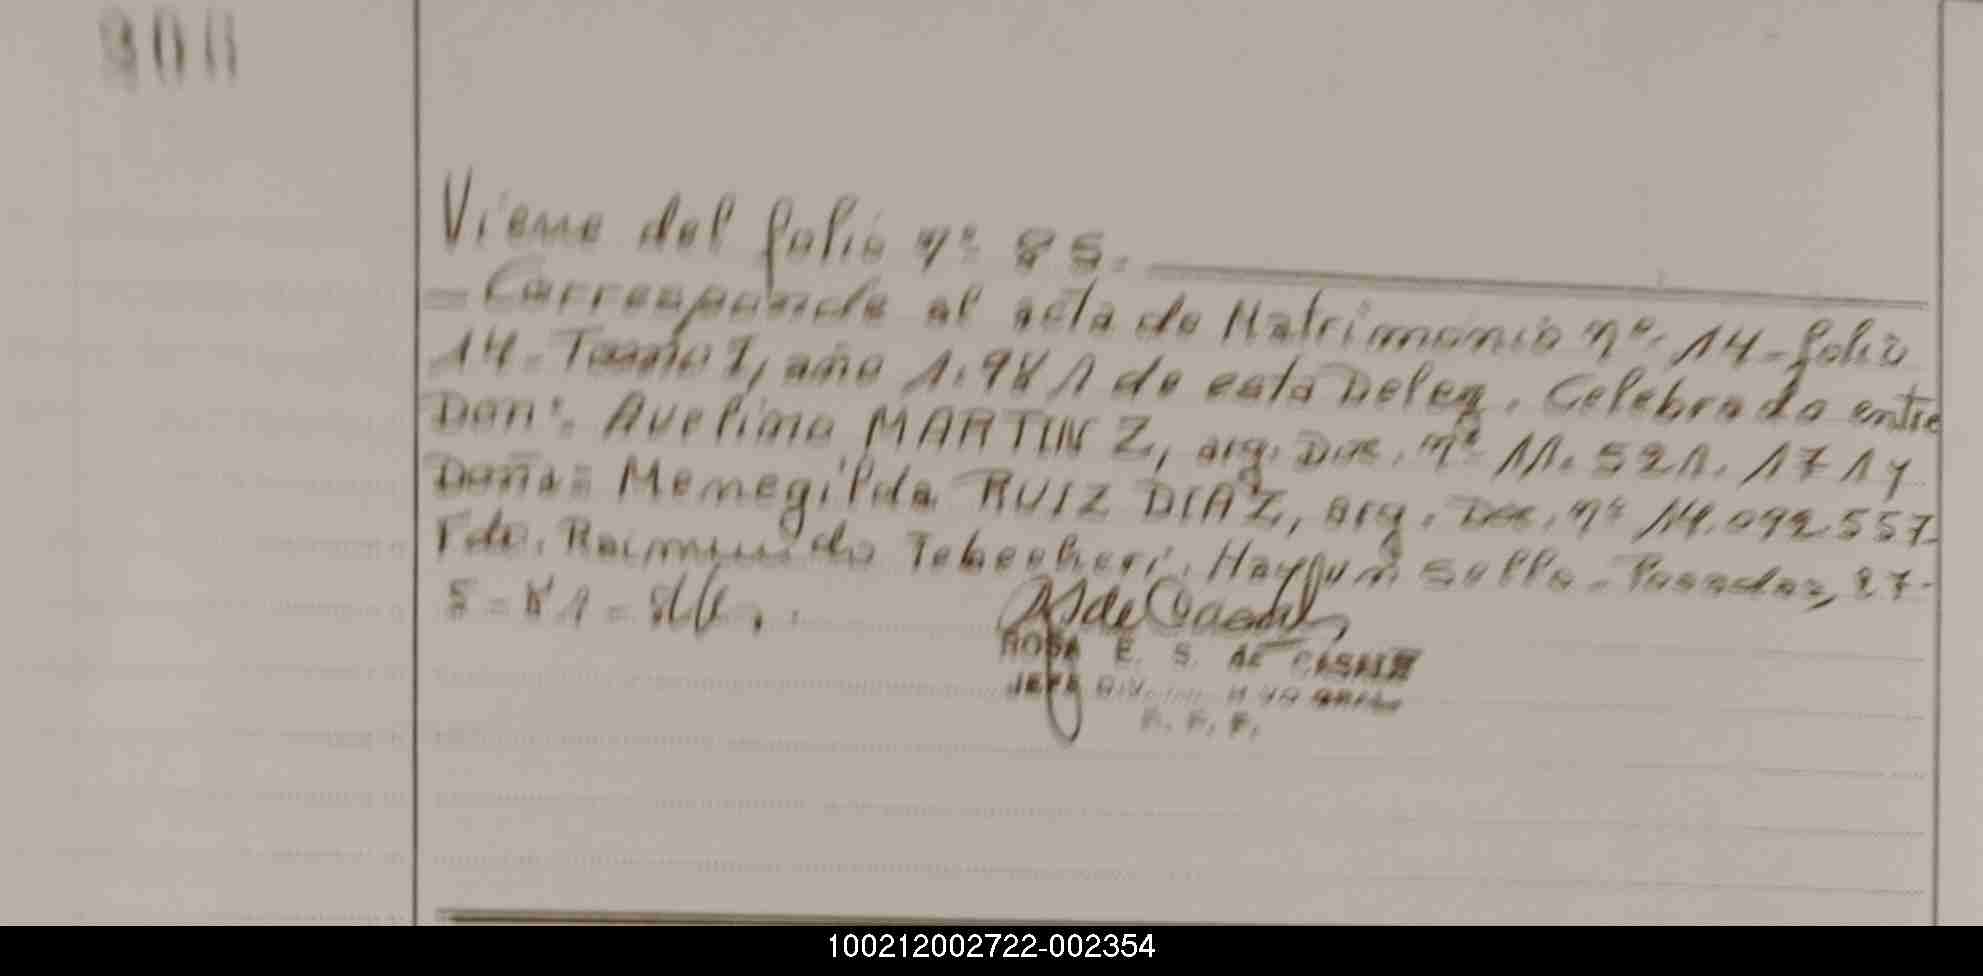 Viene del folio nº 85.
= Corresponde al acta de Matrimonio nº. 14 - folio
14 - Tomo I, año 1.981 de esta Deleg. Celebrado entre
Don: Avelino MARTIN Z, arg. Doc. nº 11.521.171 y
Doña: Memegilda RUIZ DIAZ, arg. Doc. nº 14.092.557
Fdo. Raimundo Hay un sello - Posadas, 27-
5 = 81 =
ROSA E. S. de CASALE
JEFE DIV.
100212002722-002354